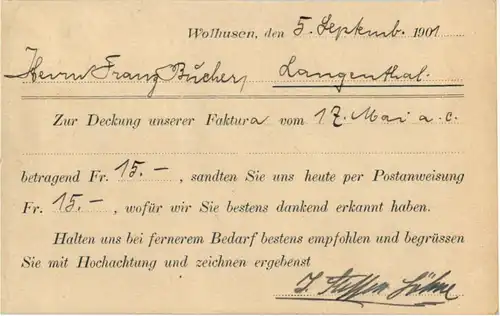 Wolhusen, den 5. Septemb. 1901
Herrn Franz Bucher, Langenthal.
Zur Deckung unserer Faktura vom 17. Mai a. c.
betragend Fr. 15.–, sandten Sie uns heute per Postanweisung
Fr. 15.–, wofür wir Sie bestens dankend erkannt haben.
Halten uns bei fernerem Bedarf bestens empfohlen und begrüssen
Sie mit Hochachtung und zeichnen ergebenst
J. Steffen Söhne